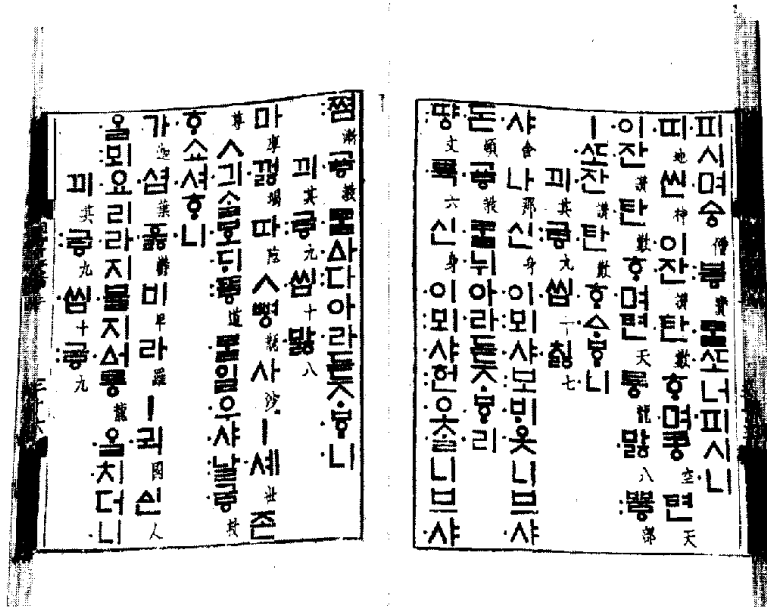 피시며숭僧봏寶ᄅᆞᆯᄯᅩ너피시니
띠地씬神이잔讚탄歎ᄒᆞ며콩空텬天
이잔讚탄歎ᄒᆞ며텬天룡龍밣八뽕部
ㅣᄯᅩ잔讚탄歎ᄒᆞᅀᆞᄫᆞ니
끠其구ᇢ九씹十치ᇙ七
샤舍나那신身이뫼샤보ᄇᆡ옷니브샤
돈頓교ᇢ敎ᄅᆞᆯ뉘아라듣ᄌᆞᄫᆞ리
땽丈륙六신身이뫼샤헌오ᄉᆞᆯ니브샤
쪔漸교ᇢ敎ᄅᆞᆯᅀᅡ다아라듣ᄌᆞᄫᆞ니
끠其구ᇢ九씹十바ᇙ八
마摩껋竭따陁ㅅ뼝甁사沙ㅣ셰世존
尊ㅅ긔ᄉᆞᆯᄫᅩᄃᆡ또ᇢ道ᄅᆞᆯ일우샤날구ᇢ救
ᄒᆞ쇼셔ᄒᆞ니
가迦셥葉ᅙᅮᇙ鬱비卑라羅ㅣ귁國ᅀᅵᆫ人
ᄋᆞᆯ뫼요리라지블지ᅀᅥ룡龍ᄋᆞᆯ치더니
끠其구ᇢ九씹十구ᇢ九